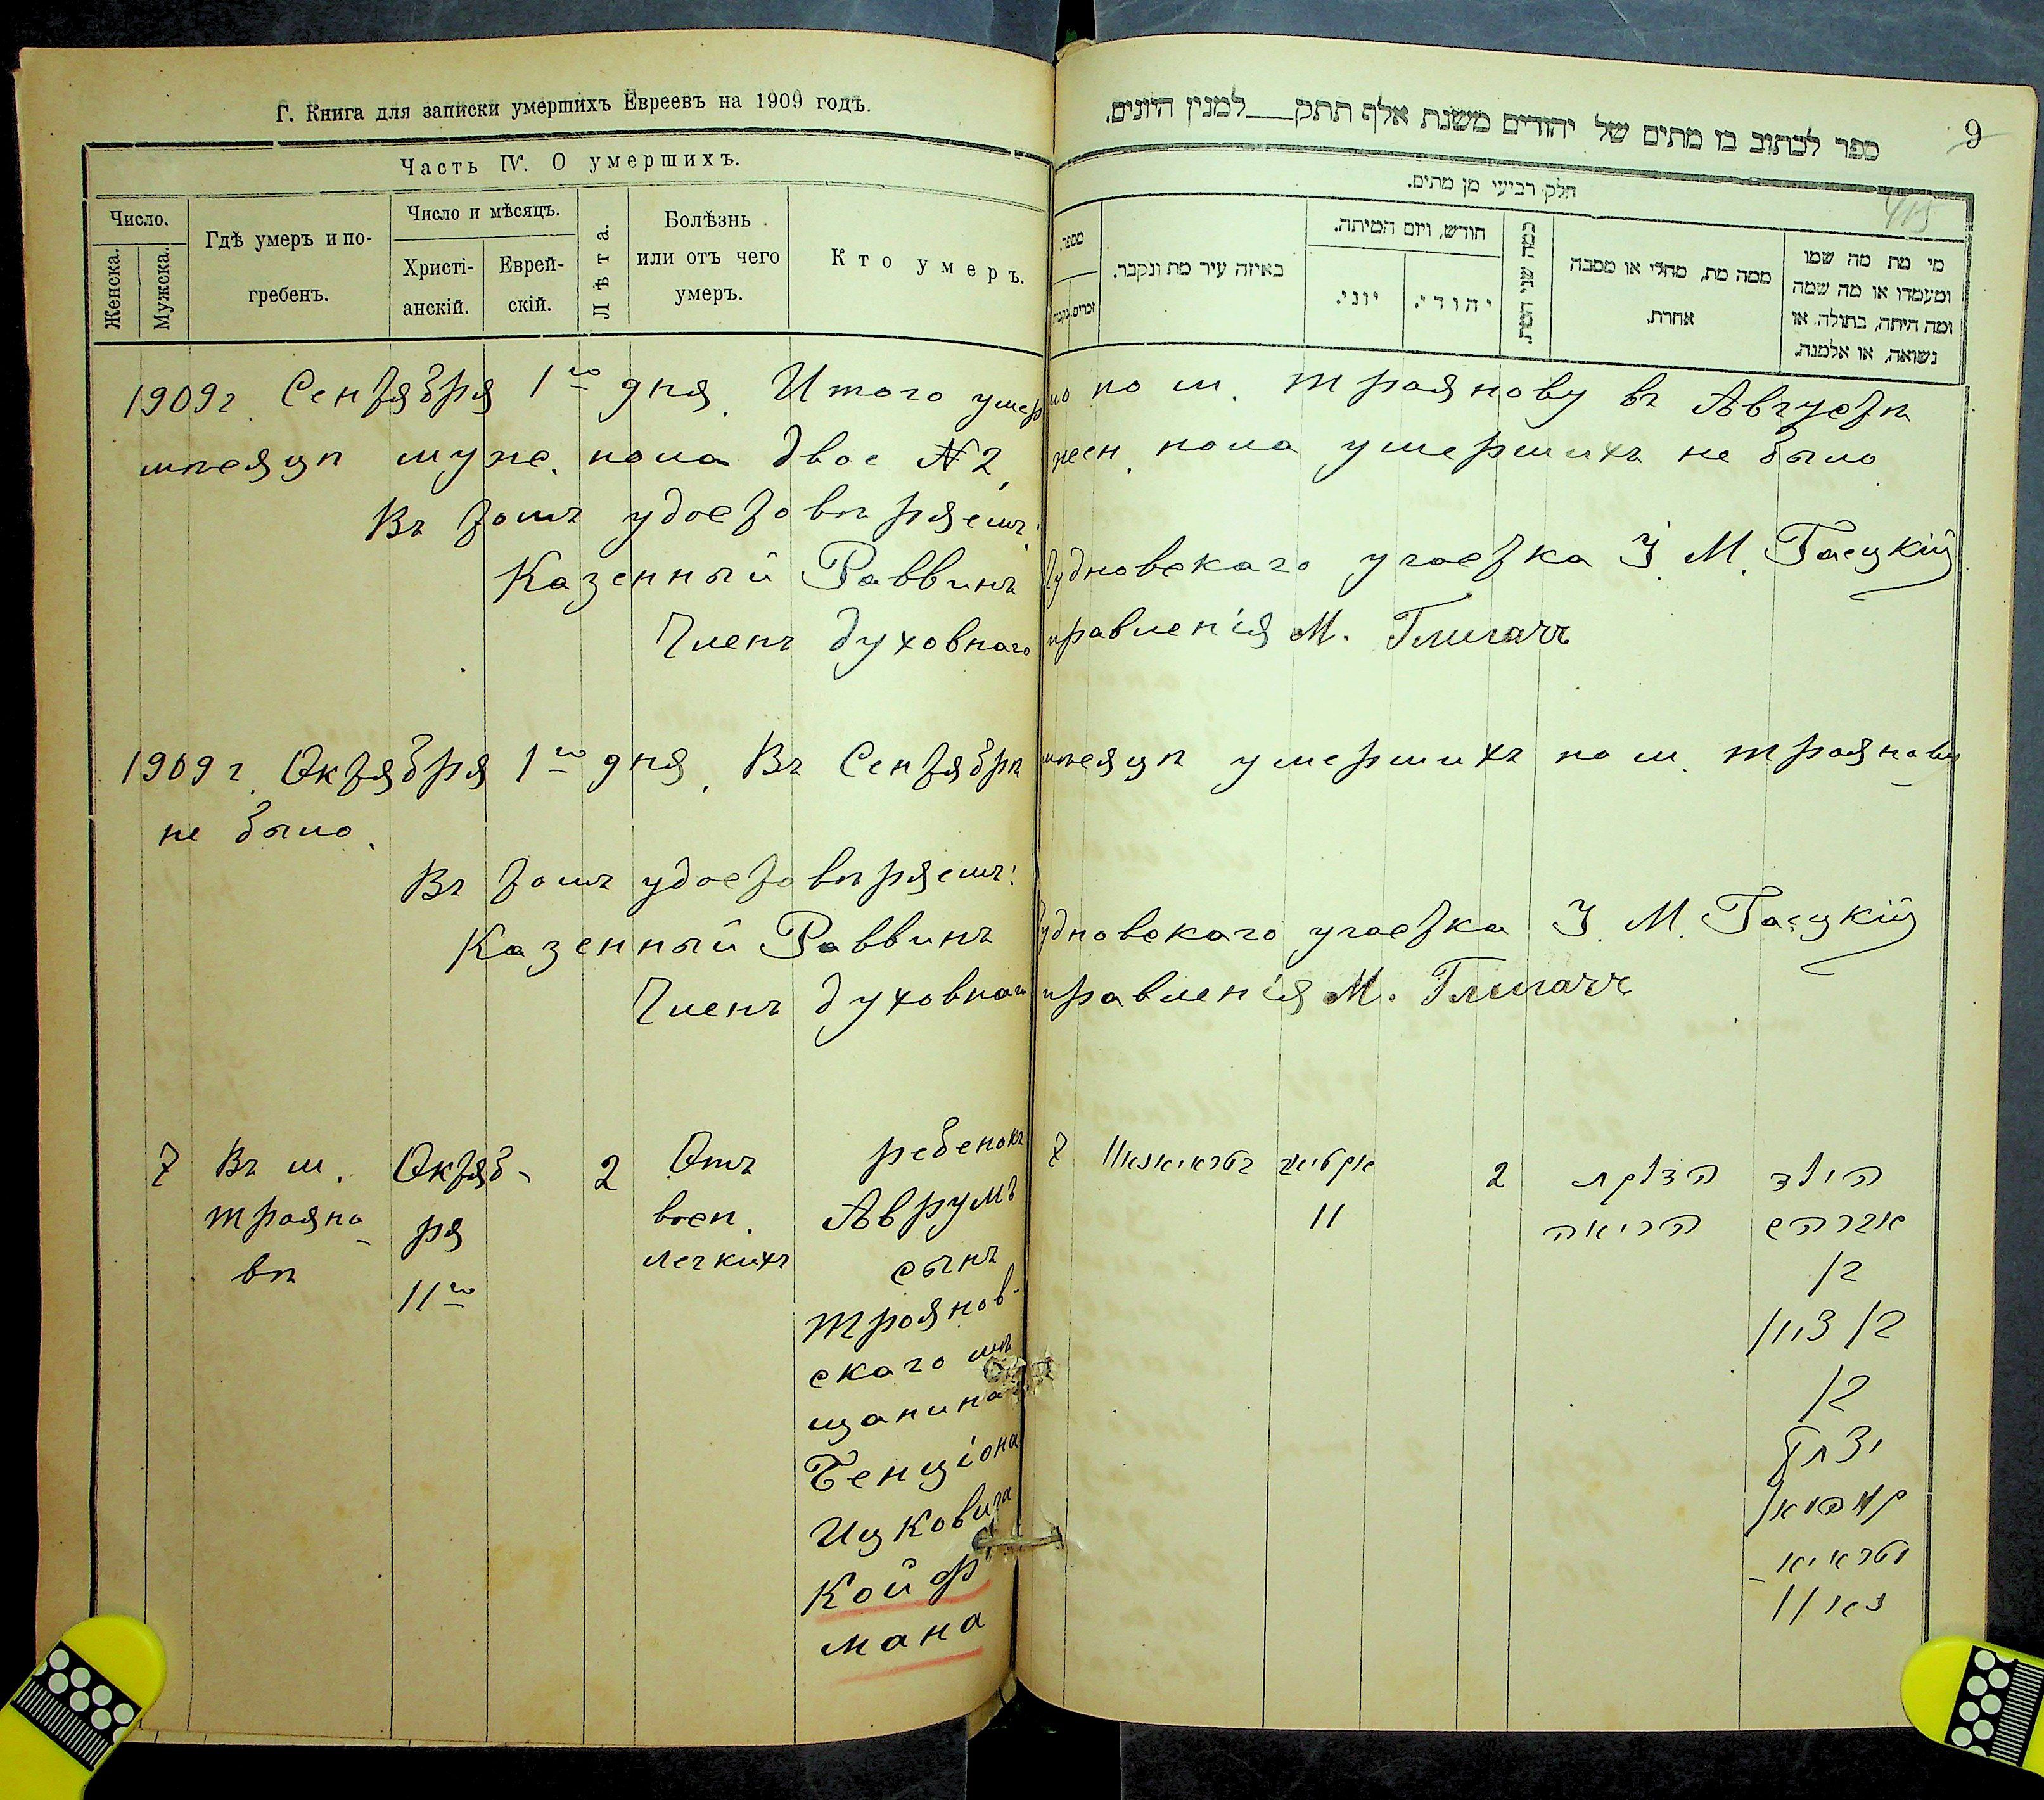 Г. Книга для записки умершихъ Евреевъ на 1909 годъ.
Часть IV. О умершихъ.
Число.
Женска.
Мужска.
Гдѣ умеръ и по-
гребенъ.
Число и мѣсяцъ.
Христі-
анскій.
Еврей-
скій.
Лѣта.
Болѣзнь
или отъ чего
умеръ.
Кто умеръ.
9
ספר לכתוב בו מתים של יהודים משנת אלף תתק___למנין היונים.
חלק רביעי מן מתים.
מספר.
זכרים.
באיזה עיר מת ונקבר.
חודש, ויום המיתה.
יוני.
יהודי.
כמה שני המת
ממה מת, מחלי או מסבה
אחרת.
מי מת מה שמו
ומעמדו או מה שמה
ומה היתה, בתולה או
נשואה, או אלמנה.
1909 г. Сентября 1го дня. Итого умерло по м. Троянову въ Августѣ
мѣсяцѣ муже. пола двое №2, жен. пола умершихъ не было
Въ томъ удостовѣряемъ:
Казенный Раввинъ Чудновскаго участка І. М. Гаецкій
Членъ духовнаго правленія М.
1909 г. Октября 1го дня. Въ Сентябрѣ мѣсяцѣ умершихъ по м. Троянову
не было.
Въ томъ удостовѣряемъ:
Казенный Раввинъ Чудновскаго участка І. М. Гаецкій
Членъ духовнаго правленія М.
7
Въ м.
Трояно-
вѣ
Октяб-
ря
11го
2
Отъ
восп.
легкихъ
ребенокъ
Аврумъ
сынъ
Троянов-
скаго мѣ
щанина
Бенціона
Ицковича
Койф
мана
7
אקטיאב
11
2
הדלקת
הריאה
הילד
אברהם
בן
בן ציון
בן
יצחק